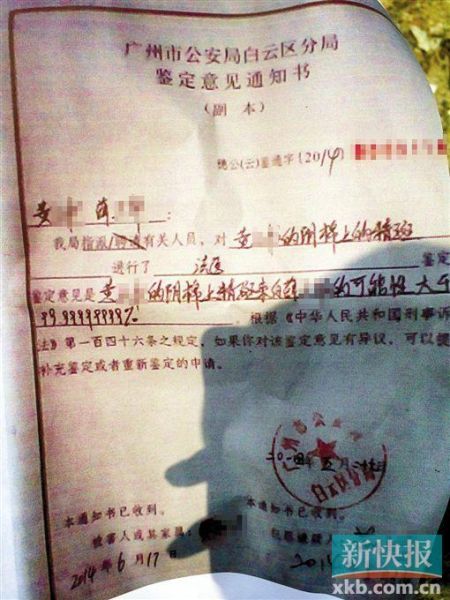 广州市公安局白云区分局
鉴定意见通知书
(副本)
穗公(云)鉴通字〔2014〕
黄 :
我局指派/聘请有关人员,对 黄 的阴棉上的精斑
进行了 法医 鉴定
鉴定意见是 黄 的阴棉上精斑来自薛 的可能性大于
99.99999999%! 。根据《中华人民共和国刑事诉
法》第一百四十六条之规定,如果你对该鉴定意见有异议,可以提
补充鉴定或者重新鉴定的申请。
广州市公安局
白云区分局
本通知书已收到。
被害人或其家属:
2014年6月17日
本通知书已收到。
犯罪嫌疑
201
新快报
xkb.com.cn